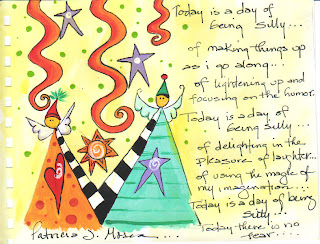 Today is a day of
being silly...
of making things up
as i go along...
of lightening up and
focusing on the humor.
Today is a day of
being silly...
of delighting in the
pleasure of laughter...
of using the magic of
my imagination...
Today is a day of being
silly...
Today there is no
fear....
Patricia J. Mosca....